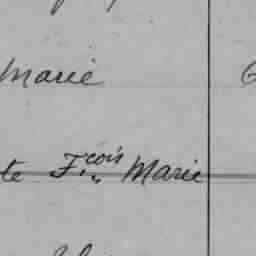 Marie
te F.çois Marie